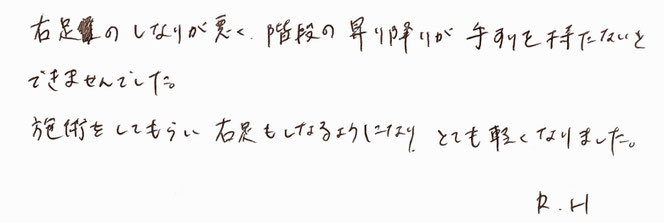 右足のしなりが悪く、階段の昇り降りが手すりを持たないと
できませんでした。
施術をしてもらい右足もしなるようになり、とても軽くなりました。
R.H